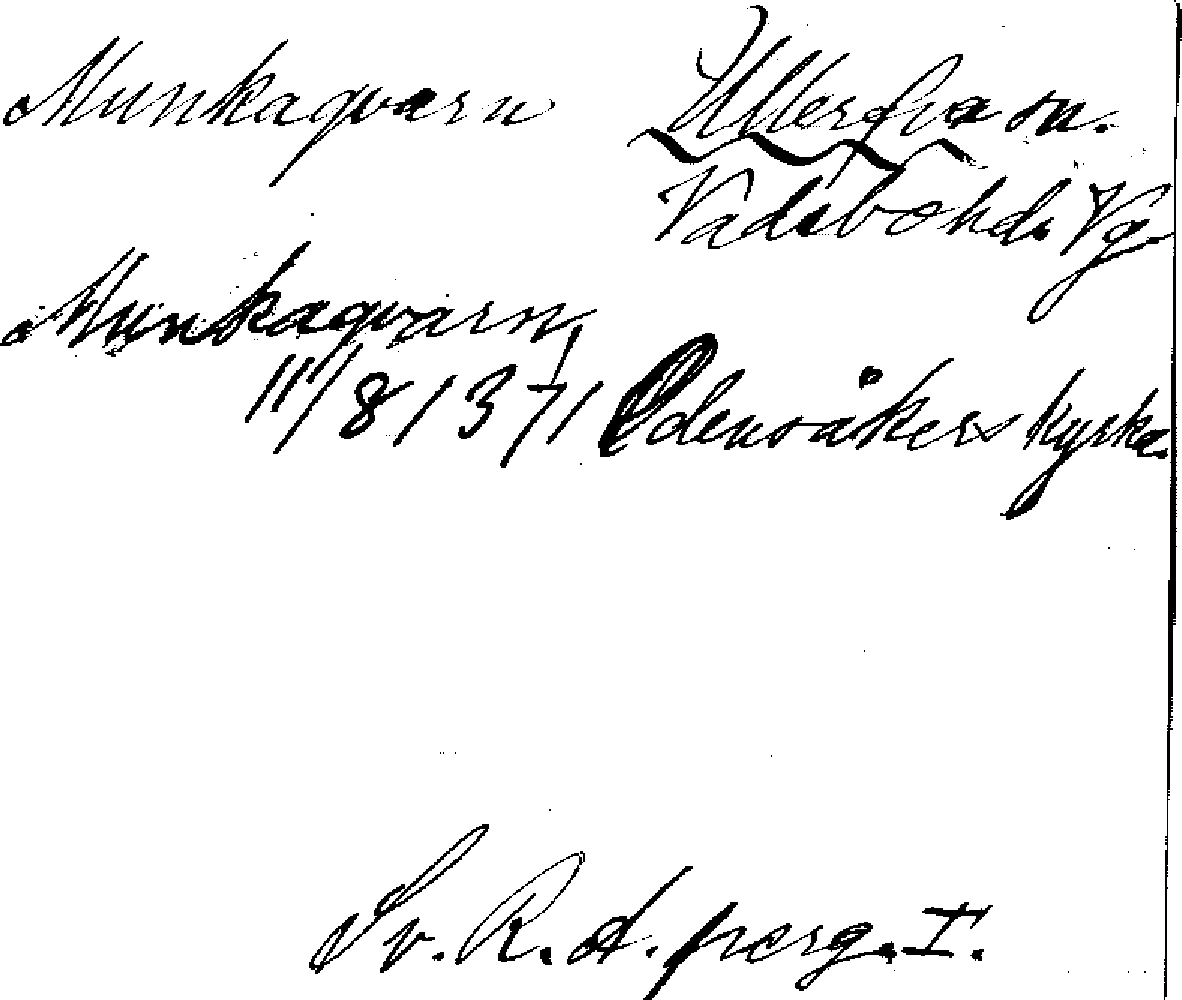 Munkaqvarn Ullerfva sn.
Vadsbo hd. Vg
Munkaqvarn,
11/8 1371 Odensåkers kyrka.
Sv. R. A. perg. I.